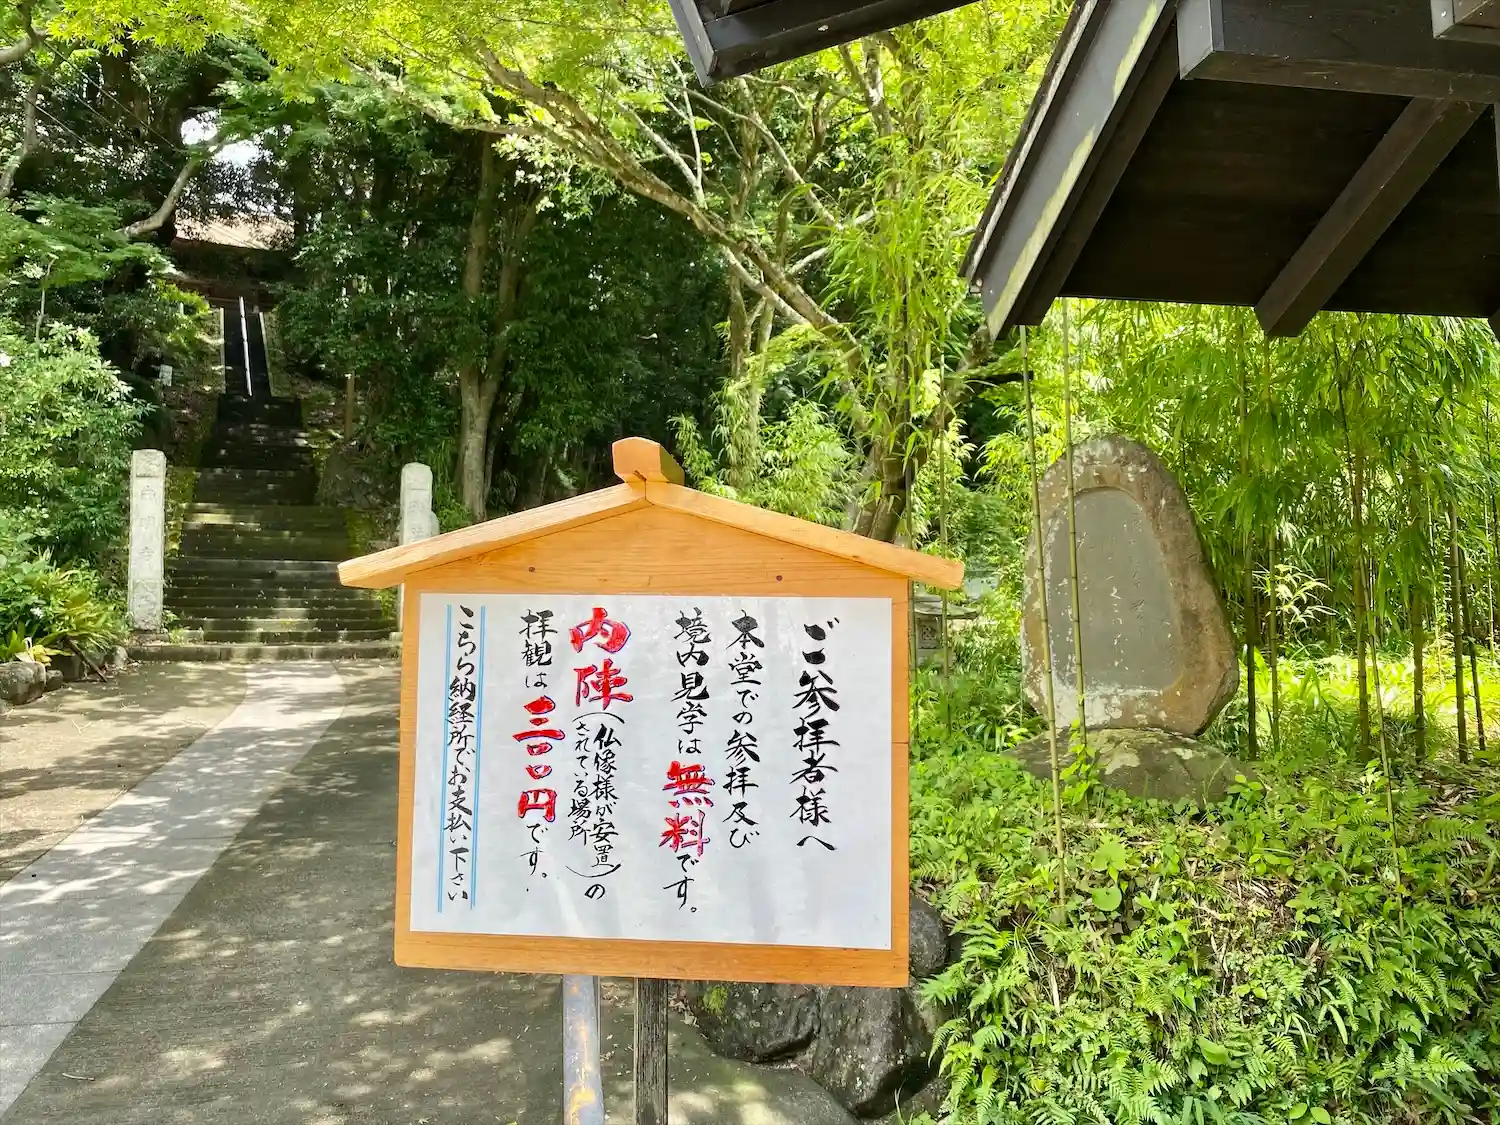 ご参拝者様へ
本堂での参拝及び
境内見学は無料です。
内陣(仏像様が安置されている場所)の
拝観は三〇〇円です。
こちら納経所でお支払い下さい